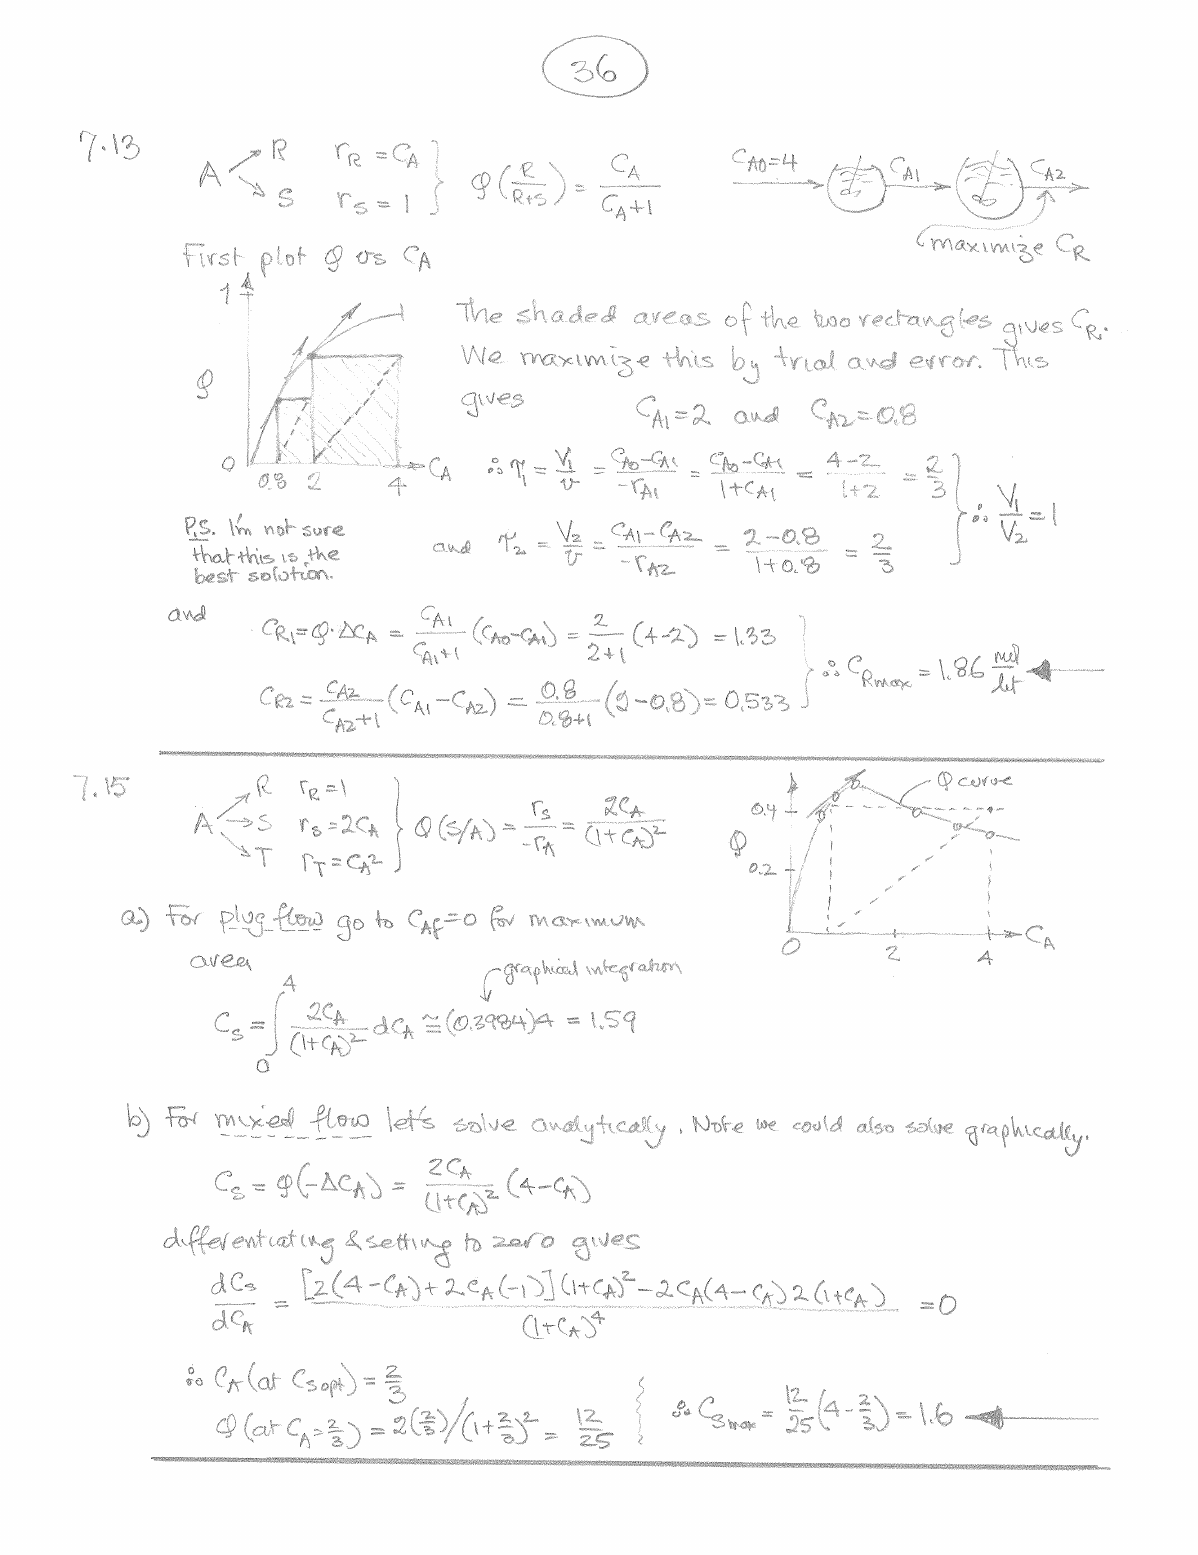 36
7.13
A → R  r_R = C_A
A → S  r_S = 1
φ(R/(R+S)) = C_A/(C_A+1)
C_A0=4  C_A1  C_A2
maximize C_R
First plot φ vs C_A
1
φ
0
0.8 2 4 C_A
The shaded areas of the two rectangles gives C_R.
We maximize this by trial and error. This
gives C_A1=2 and C_A2=0.8
∴ τ_1 = V_1/v = (C_A0-C_A1)/-r_A1 = (C_A0-C_A1)/(1+C_A1) = (4-2)/(1+2) = 2/3
and τ_2 = V_2/v = (C_A1-C_A2)/-r_A2 = (2-0.8)/(1+0.8) = 2/3
∴ V_1/V_2 = 1
P.S. I'm not sure
that this is the
best solution.
and
C_R1 = φ·ΔC_A = C_A1/(C_A1+1) (C_A0-C_A1) = 2/(2+1) (4-2) = 1.33
C_R2 = C_A2/(C_A2+1) (C_A1-C_A2) = 0.8/(0.8+1) (2-0.8) = 0.533
∴ C_Rmax = 1.86 mol/lit
7.15
A → R  r_R = 1
A → S  r_S = 2C_A
A → T  r_T = C_A²
φ(S/A) = r_S/-r_A = 2C_A/(1+C_A)²
φ curve
0.4
φ
0.2
0 2 4 C_A
a) For plug flow go to C_Af=0 for maximum
area
graphical integration
C_S = ∫_0^4 2C_A/(1+C_A)² dC_A ≅ (0.3984)4 = 1.59
b) For mixed flow let's solve analytically. Note we could also solve graphically.
C_S = φ(-ΔC_A) = 2C_A/(1+C_A)² (4-C_A)
differentiating & setting to zero gives
dC_S/dC_A = ([2(4-C_A)+2C_A(-1)](1+C_A)² - 2C_A(4-C_A)2(1+C_A))/(1+C_A)⁴ = 0
∴ C_A (at C_S opt) = 2/3
φ(at C_A=2/3) = 2(2/3)/(1+2/3)² = 12/25
∴ C_Smax = 12/25 (4-2/3) = 1.6